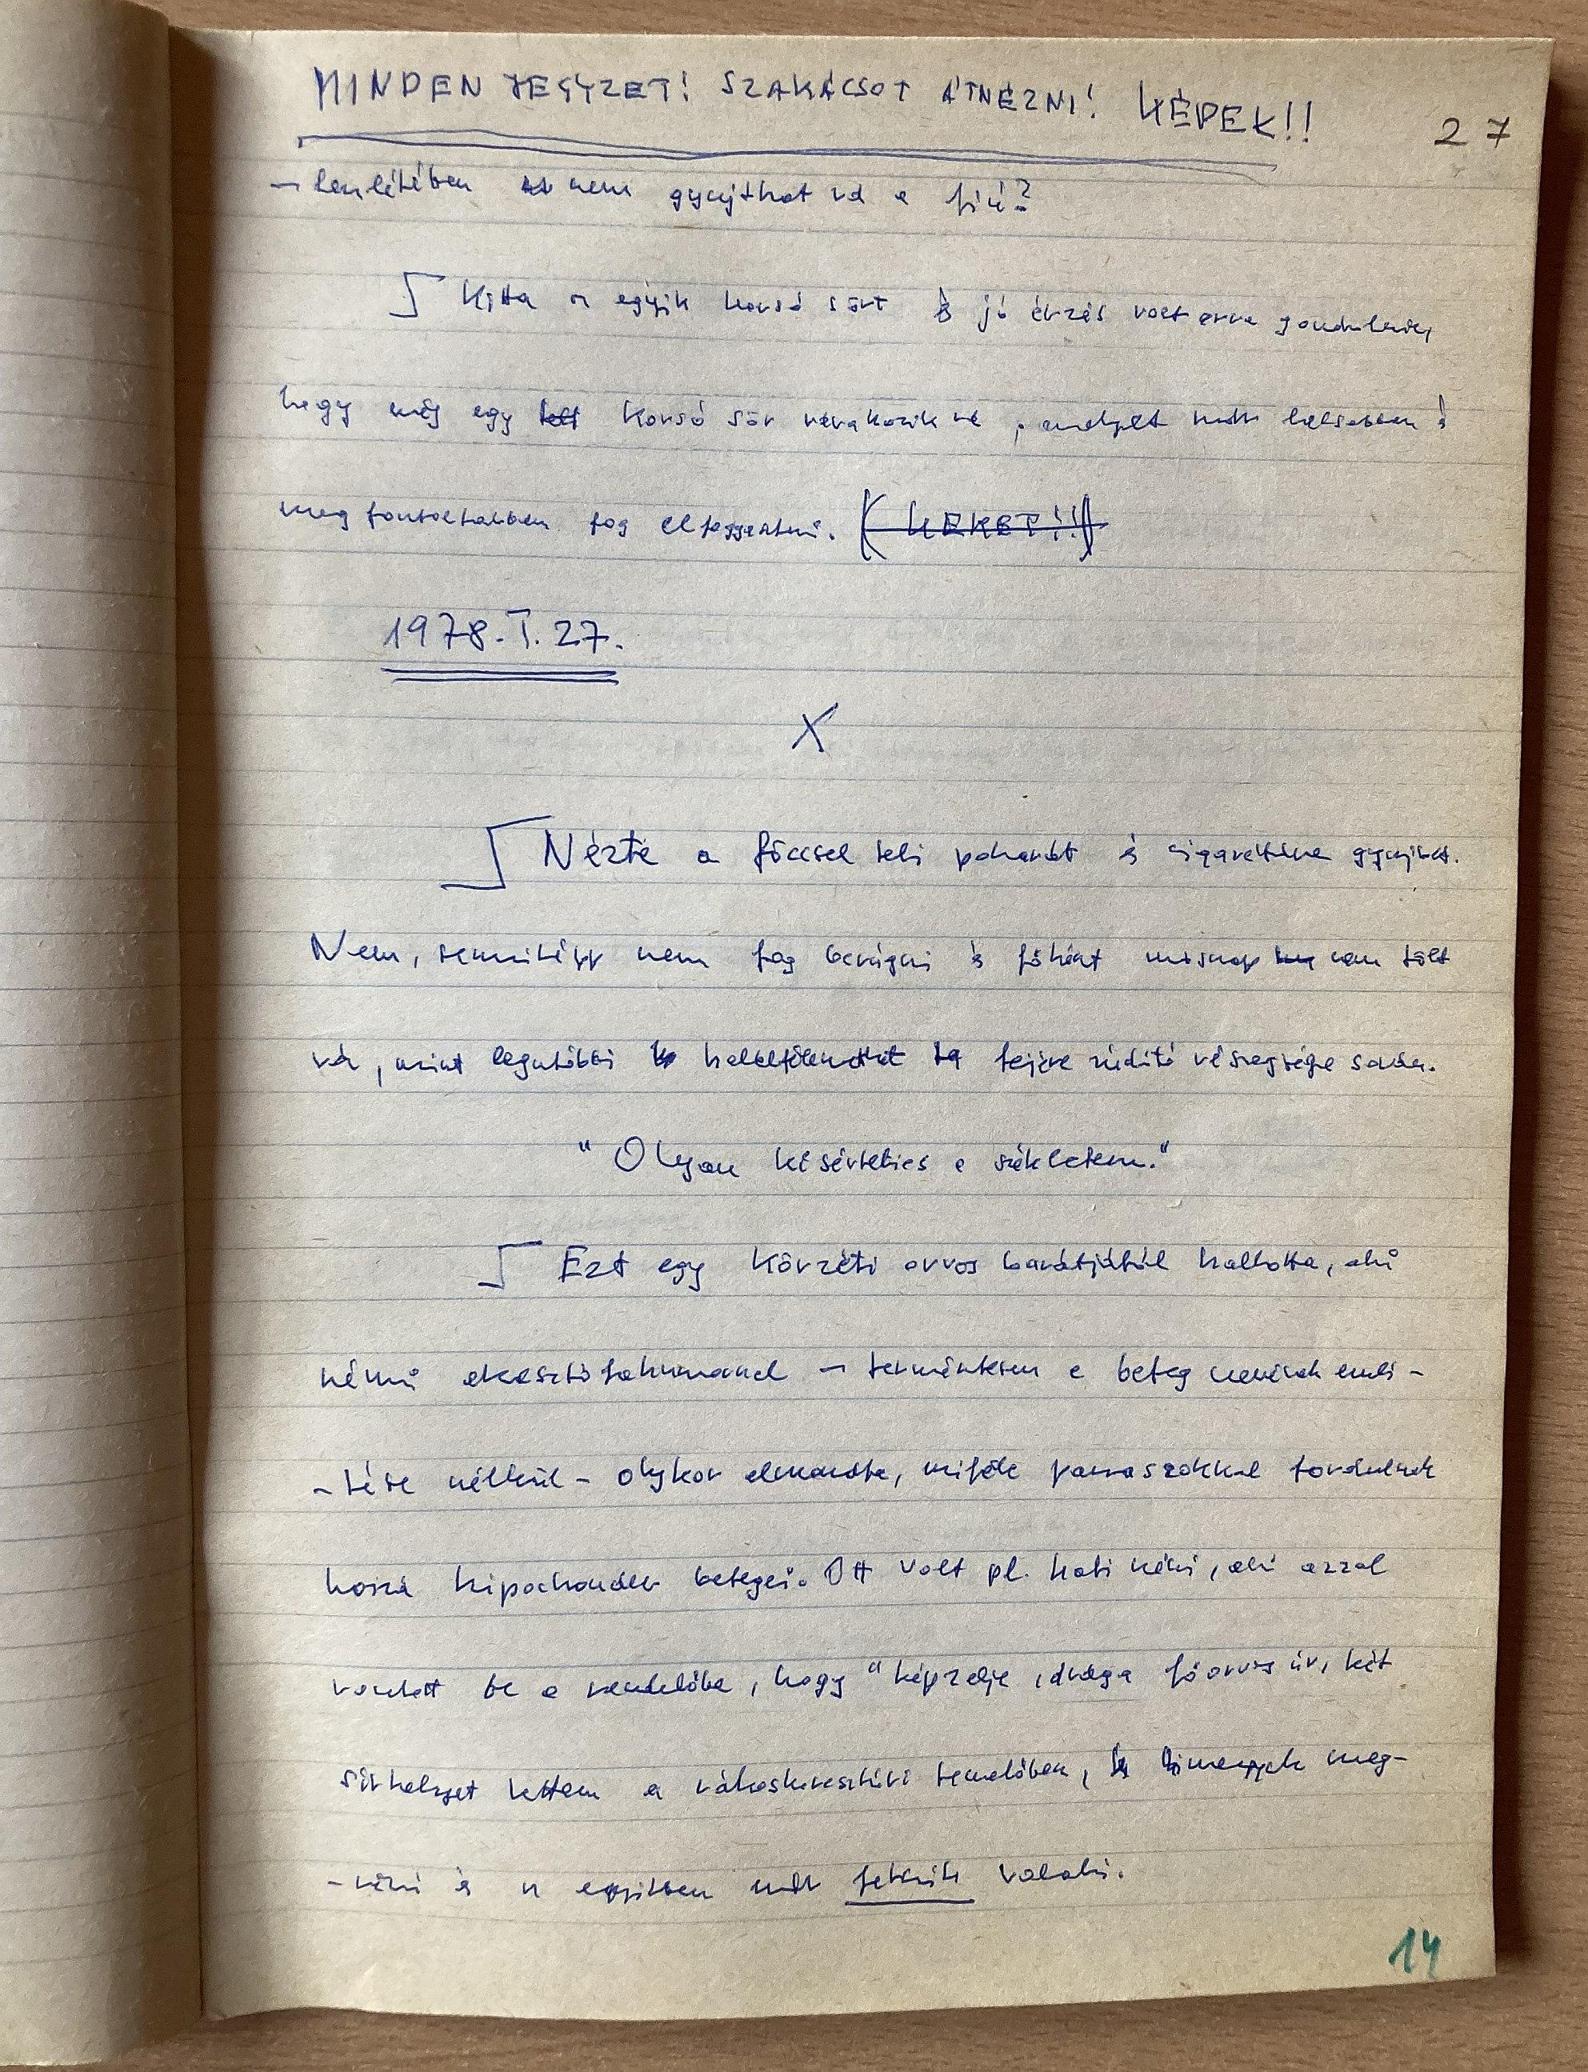 MINDEN JEGYZET! SZAKÁCSOT ÁTNÉZNI! KÉPEK!!
27
– lenlétében nem gyujthat rá a fiú?
Kitta az egyik korsó sört s jó érzés volt arra gondolnia,
hogy még egy korsó sör várakozik rá, amelyet már lassabban s
megfontoltabban fog elfogyasztani. (KÉKET!!)
1978. I. 27.
X
Nézte a fröccsel teli poharát és cigarettára gyujtott.
Nem, semmiképp nem fog berúgni s főként másnap nem tölt
rá, mint legutóbbi fejére zúdító részegsége során.
"Olyan kisérteties a székletem."
Ezt egy körzeti orvos barátjától hallotta, aki
némi akasztófahumorral – természetesen a beteg nevének emlí-
-tése nélkül – olykor elmondta, miféle panaszokkal fordulnak
hozzá hipochonder betegei. Ott volt pl. Kati néni, aki azzal
rontott be a rendelőbe, hogy "képzelje, drága főorvos úr, két
sírhelyet vettem a rákoskeresztúri temetőben, kimegyek meg-
-nézni és az egyikben már fekszik valaki.
14